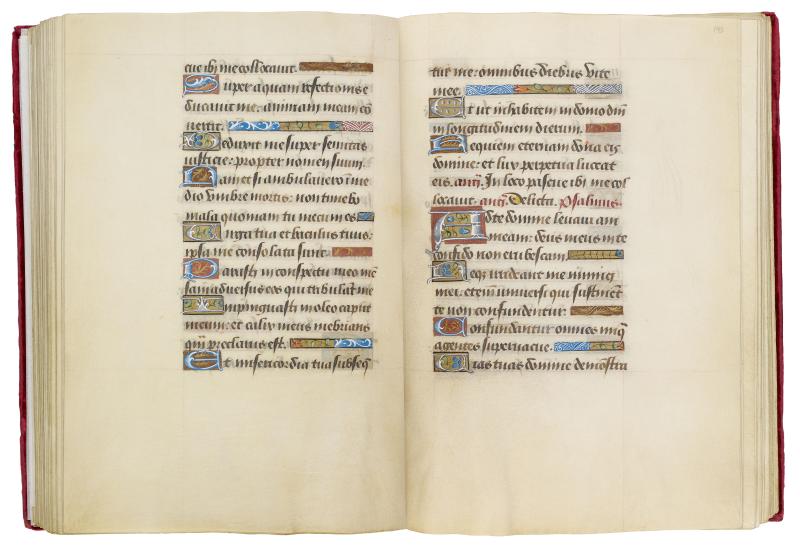 cue ibi me collocavit.
Super aquam refectionis e
ducavit me: animam meam cō
vertit.
Deduxit me super semitas
iusticie: propter nomen suum.
Nam et si ambulavero ī me
dio umbre mortis: non timebo
mala quoniam tu mecum es
Virga tua et baculus tuus:
ipsa me consolata sunt.
Parasti in conspectu meo mē
sam adversus eos qui tribulāt me
Impinguasti in oleo caput
meum: et calix meus inebrians
qm̄ preclarus est.
Et misericordia tua subseq̄
tur me: omnibus diebus vite
mee.
Et ut inhabitem in domo dn̄i
in longitudinem dierum.
Requiem eternam dona eis
domine: et lux perpetua luceat
eis. anṫ. In loco pascue ibi me col
locavit. anṫ. Delicta. Psalmus.
Ad te domine levavi ani
mam meam: deus meus in te
confido non erubescam.
Neq; irrideant me inimici
mei: etenim universi qui sustinēt
te non confundentur.
Confundantur omnes iniq̄
agentes supervacue.
Vias tuas domine demostra